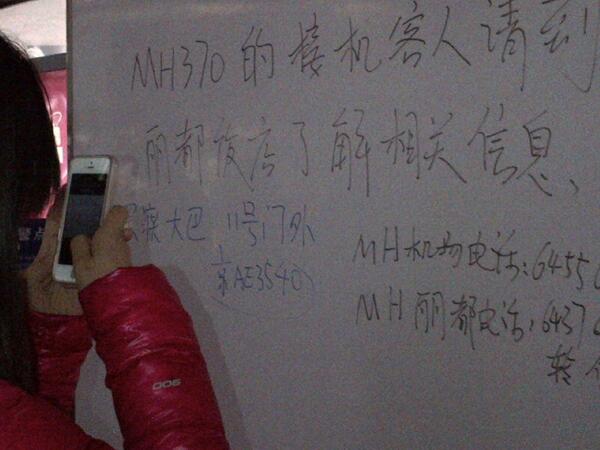 MH370的接机客人请到
丽都饭店了解相关信息、
宾大巴 11号门外
京AE3540
MH机场电话:6455
MH丽都电话:6437
转
900